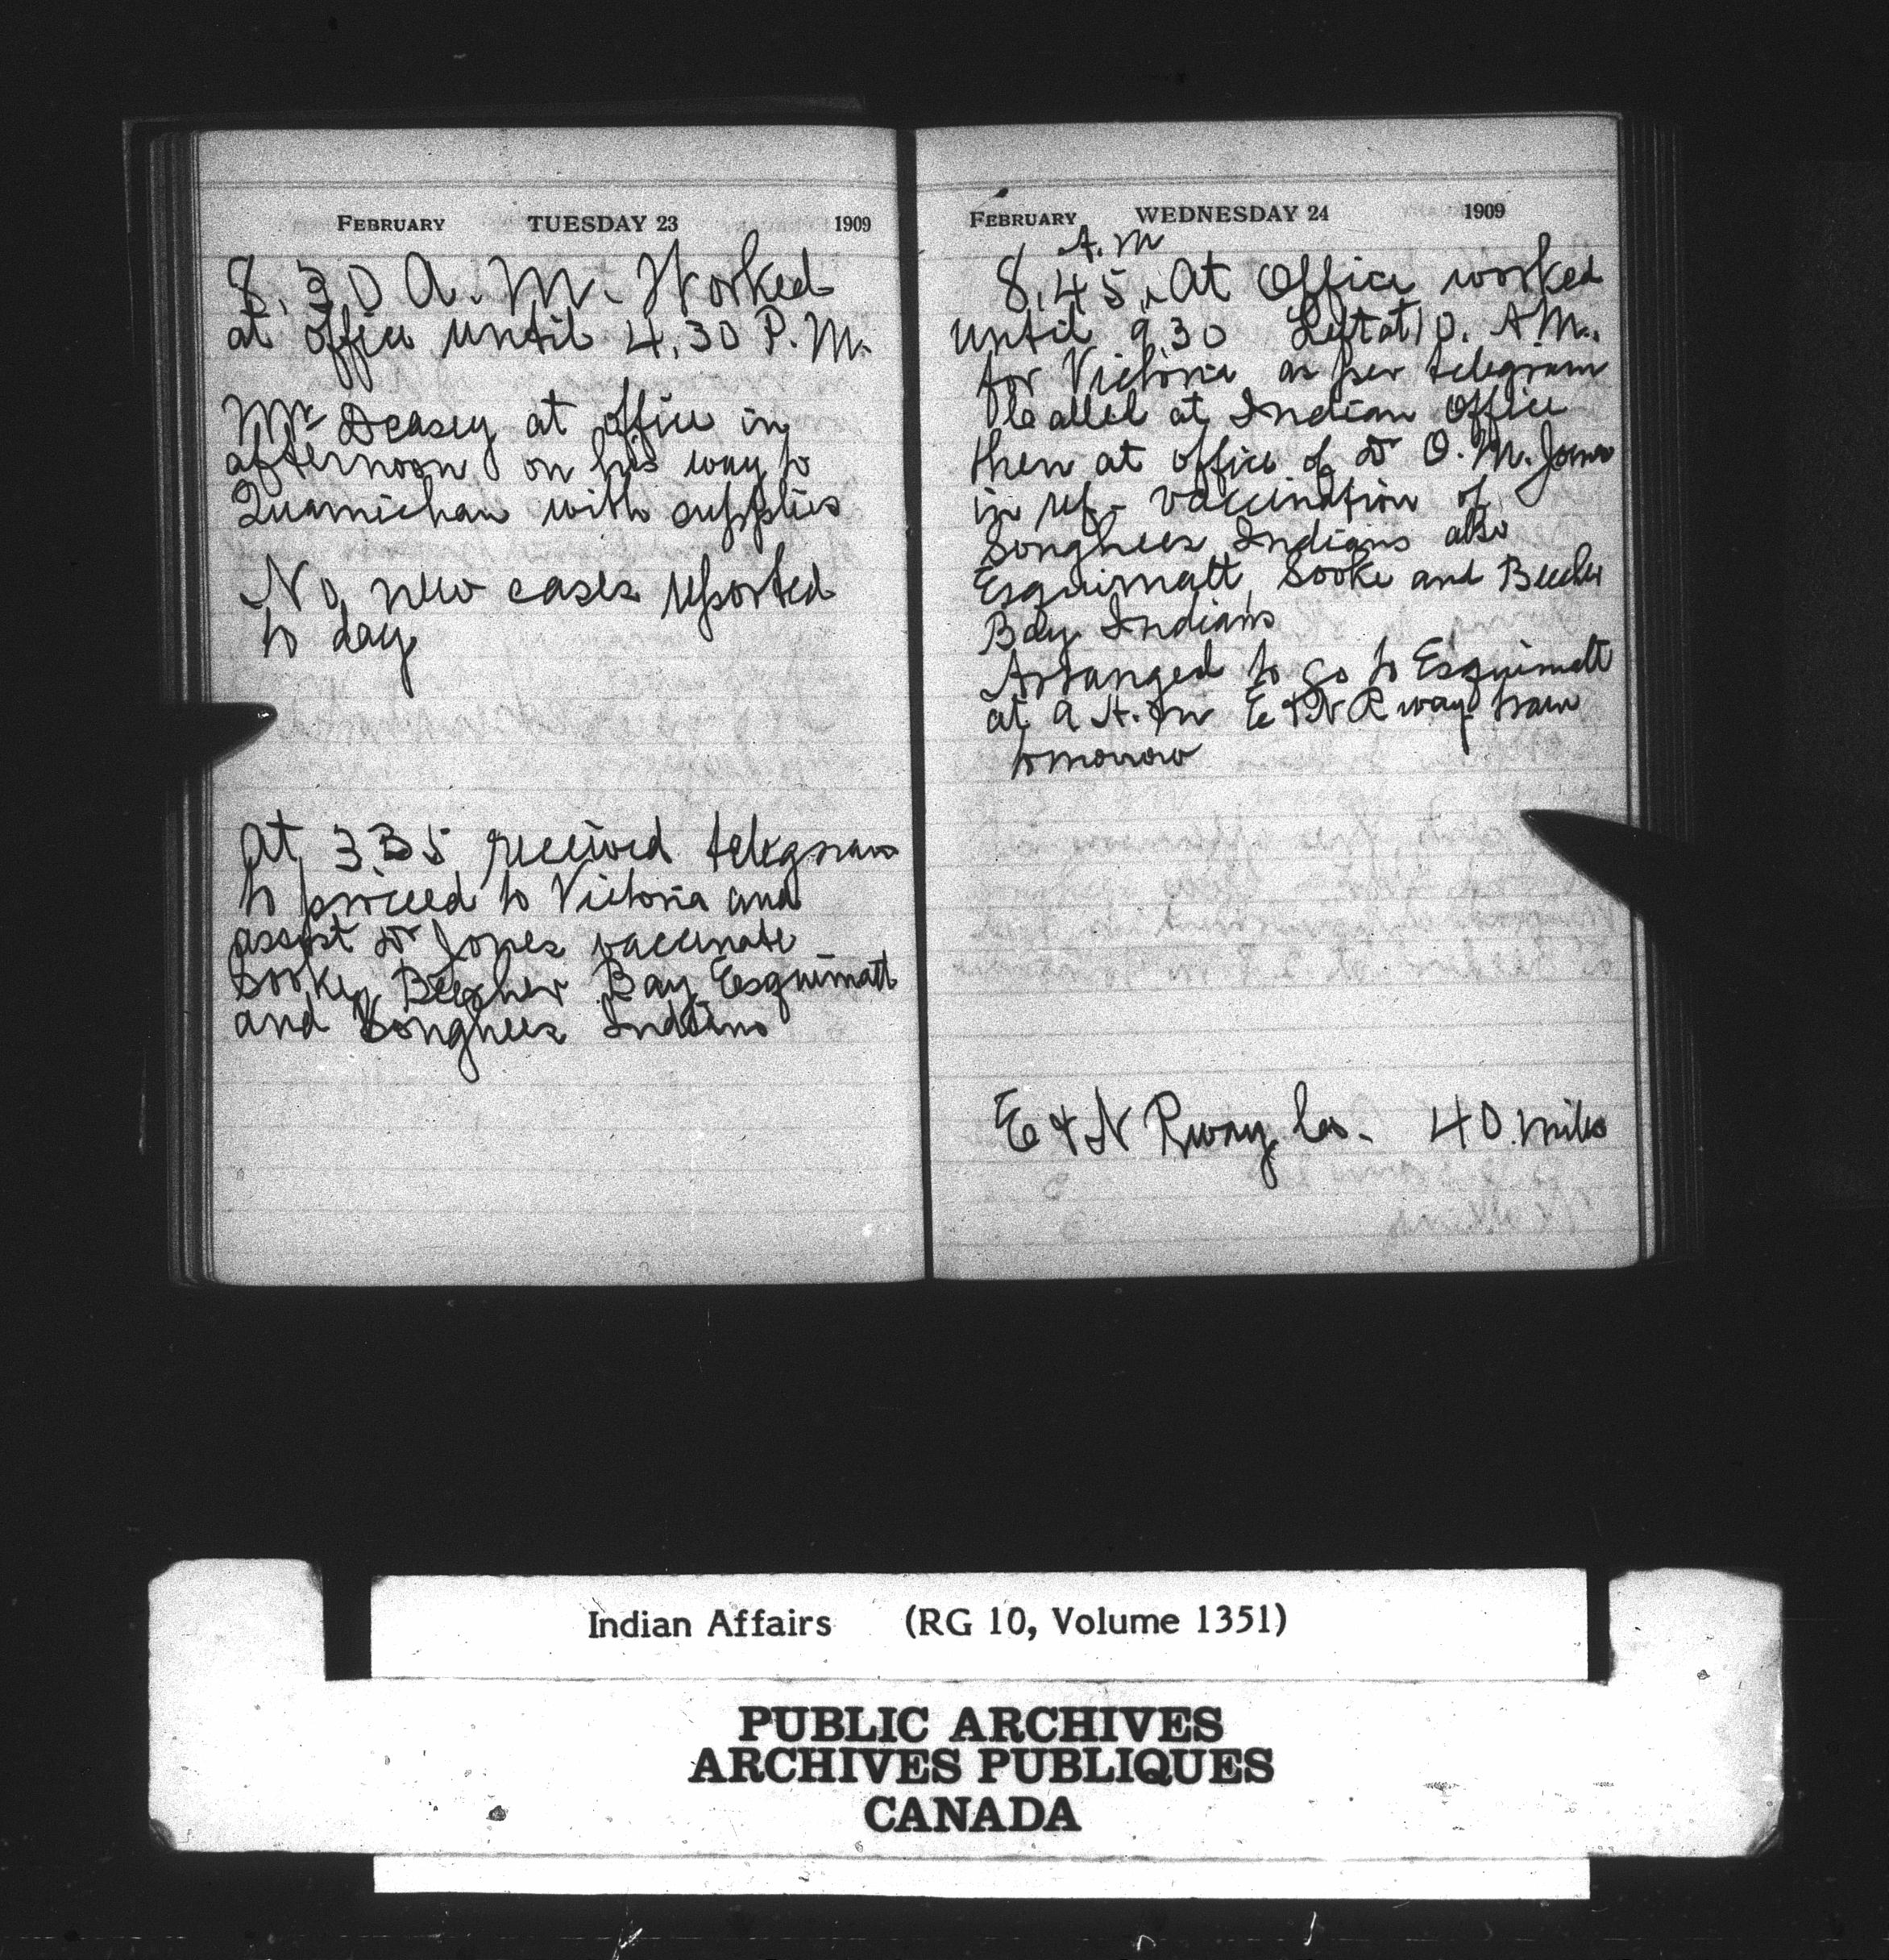 FEBRUARY TUESDAY 23 1909
8.30 A.M. Worked
at office until 4.30 P.M.
Mr Deasey at office in
afternoon on his way to
Quamichan with supplies
No new cases reported
to day
At 3.35 received telegram
to proceed to Victoria and
assist Dr Jones vaccinate
Sooke, Beecher Bay Esquimalt
and Songhees Indians
FEBRUARY WEDNESDAY 24 1909
A.M
8.45, At Office worked
until 9.30 Left at 10. A.M.
for Victoria as per telegram
Called at Indian Office
then at office of Dr O.M. Jones
in ref- vaccination of
Songhees Indians also
Esquimalt, Sooke and Beecher
Bay Indians
Arranged to go to Esquimalt
at 9 A.m E & N R way train
tomorrow
E & N Rway Co. 40 miles
Indian Affairs (RG 10, Volume 1351)
PUBLIC ARCHIVES
ARCHIVES PUBLIQUES
CANADA